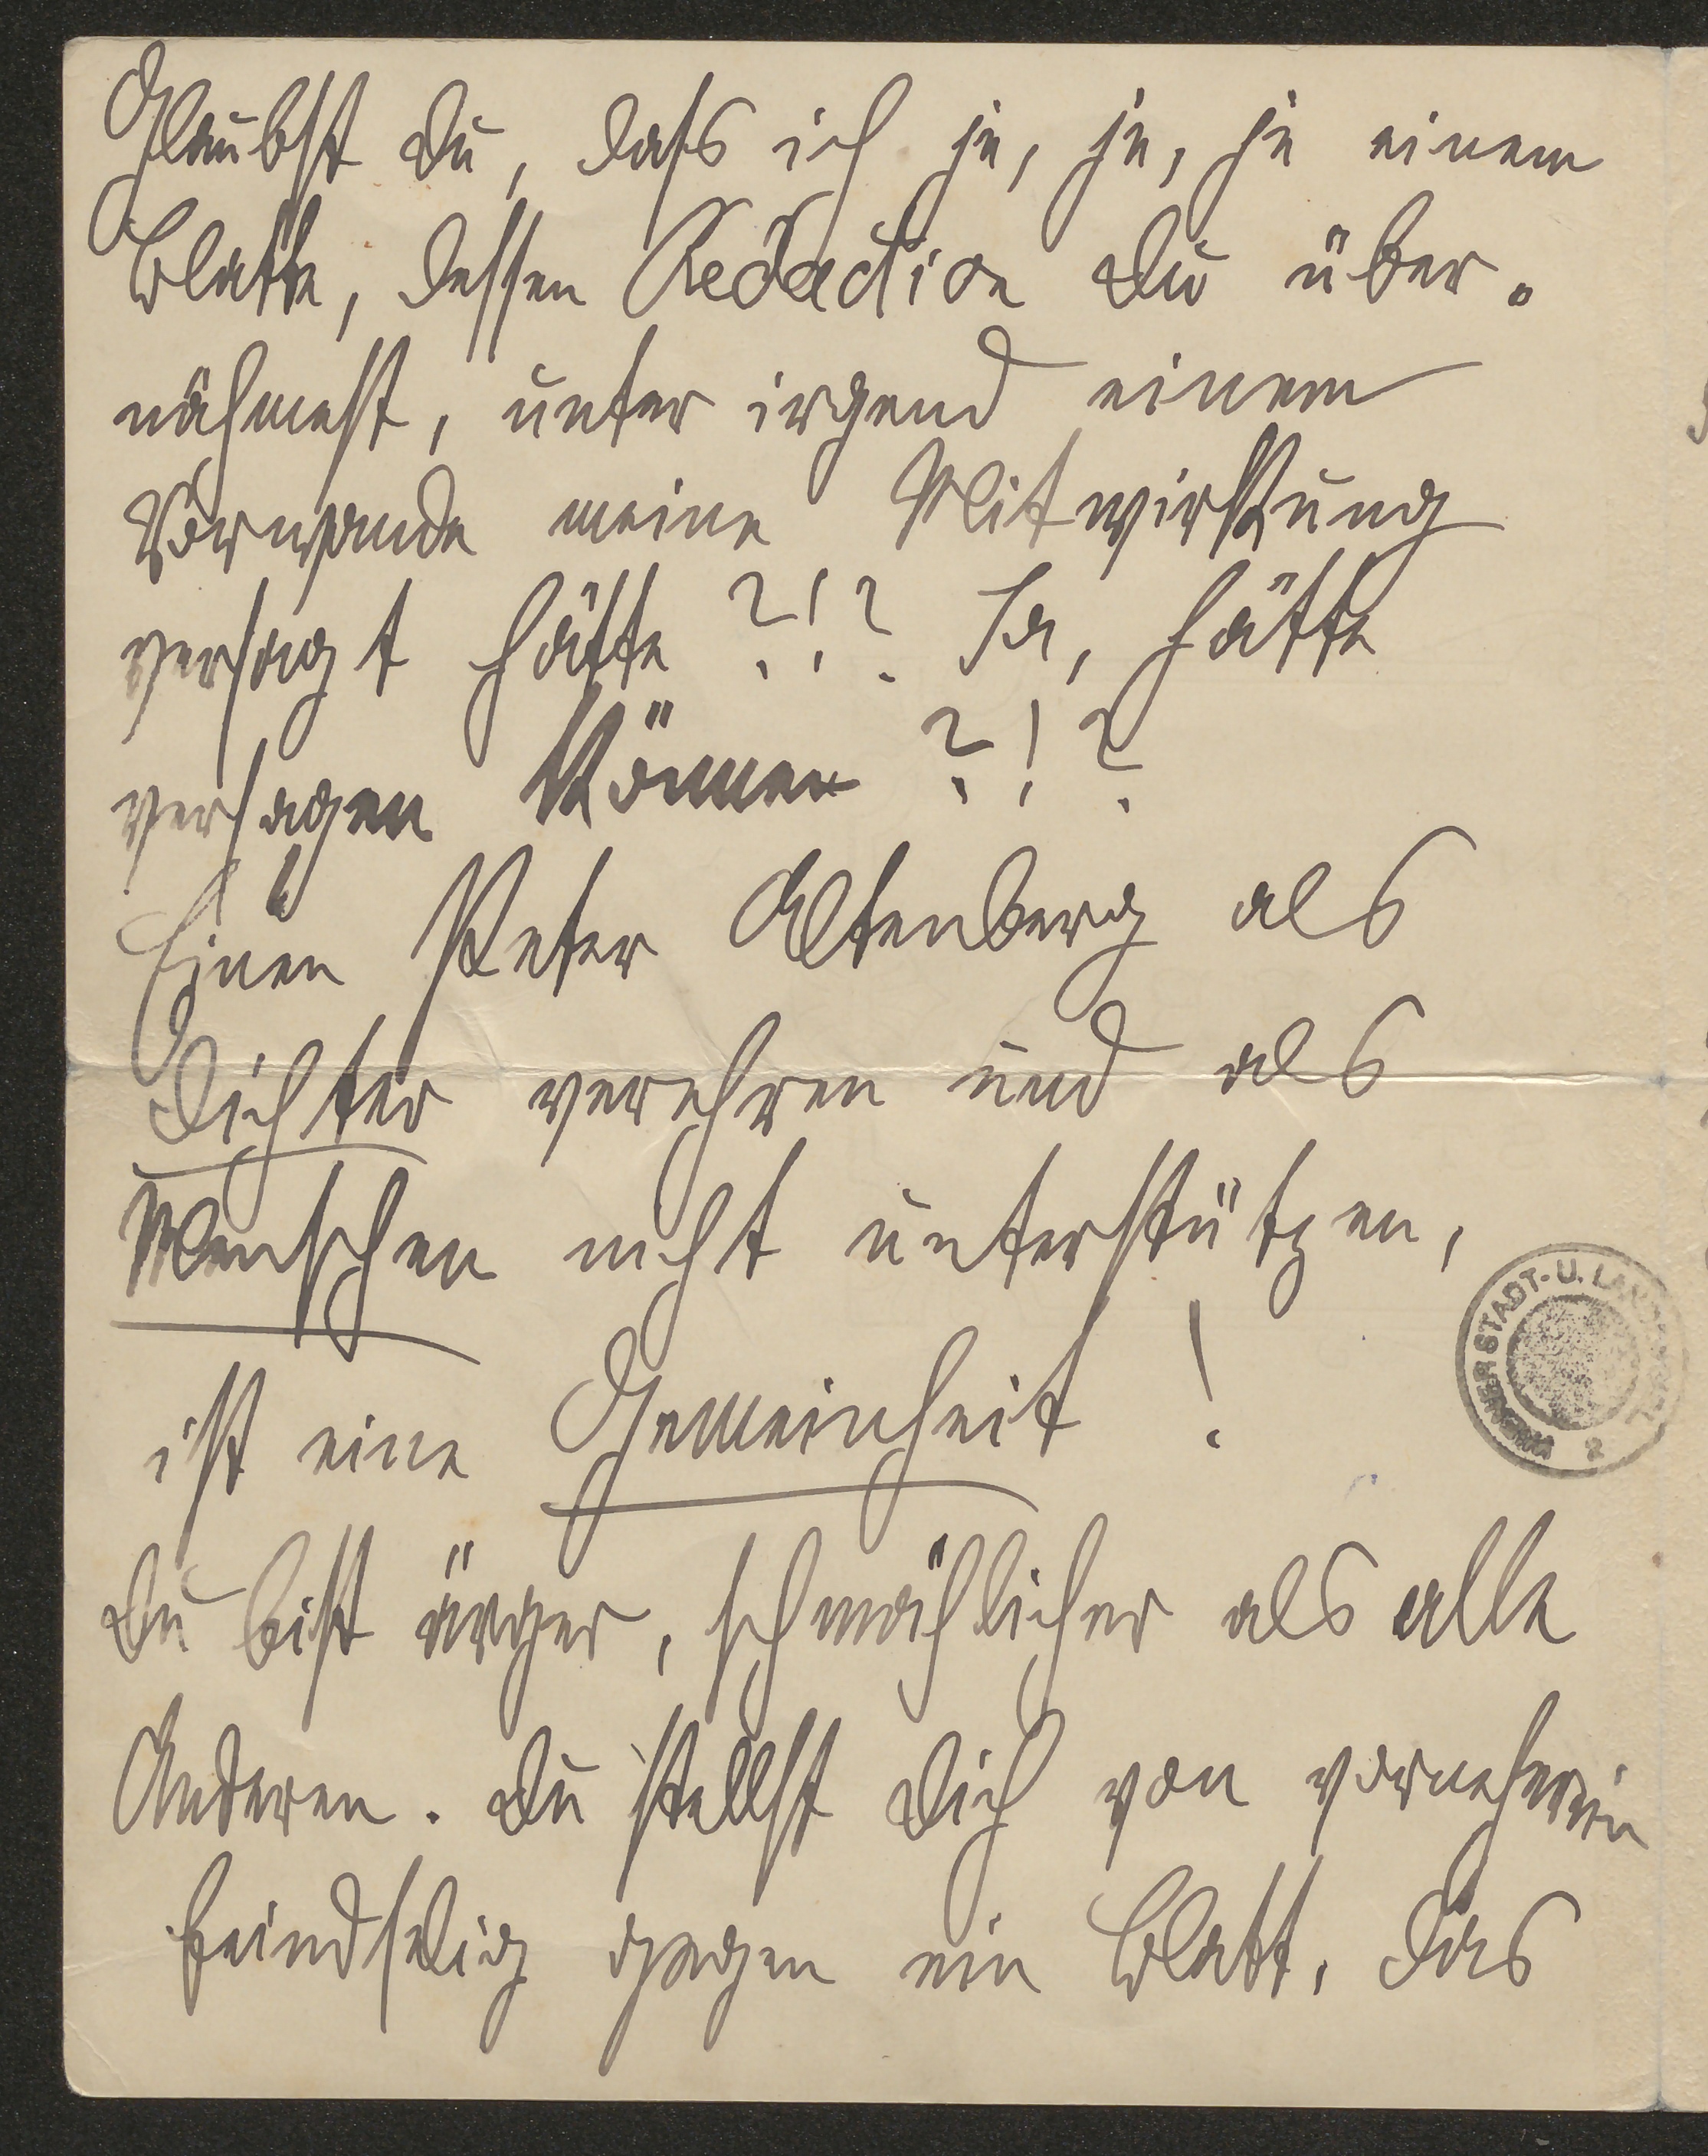 Glaubst Du, dass ich je, je, je einem
Blatte, dessen Redaction Du über-
nähmest, unter irgend einem
Vorwande meine Mitwirkung
versagt hätte ?!? Ja, hätte
versagen können ?!?
Einen Peter Altenberg als
Dichter verehren und als
Menschen nicht unterstützen,
ist eine Gemeinheit !
Du bist ärger, schmählicher als alle
Anderen. Du stellst Dich von vorneherein
feindselig gegen ein Blatt, das
WIENER STADT- U. LANDES